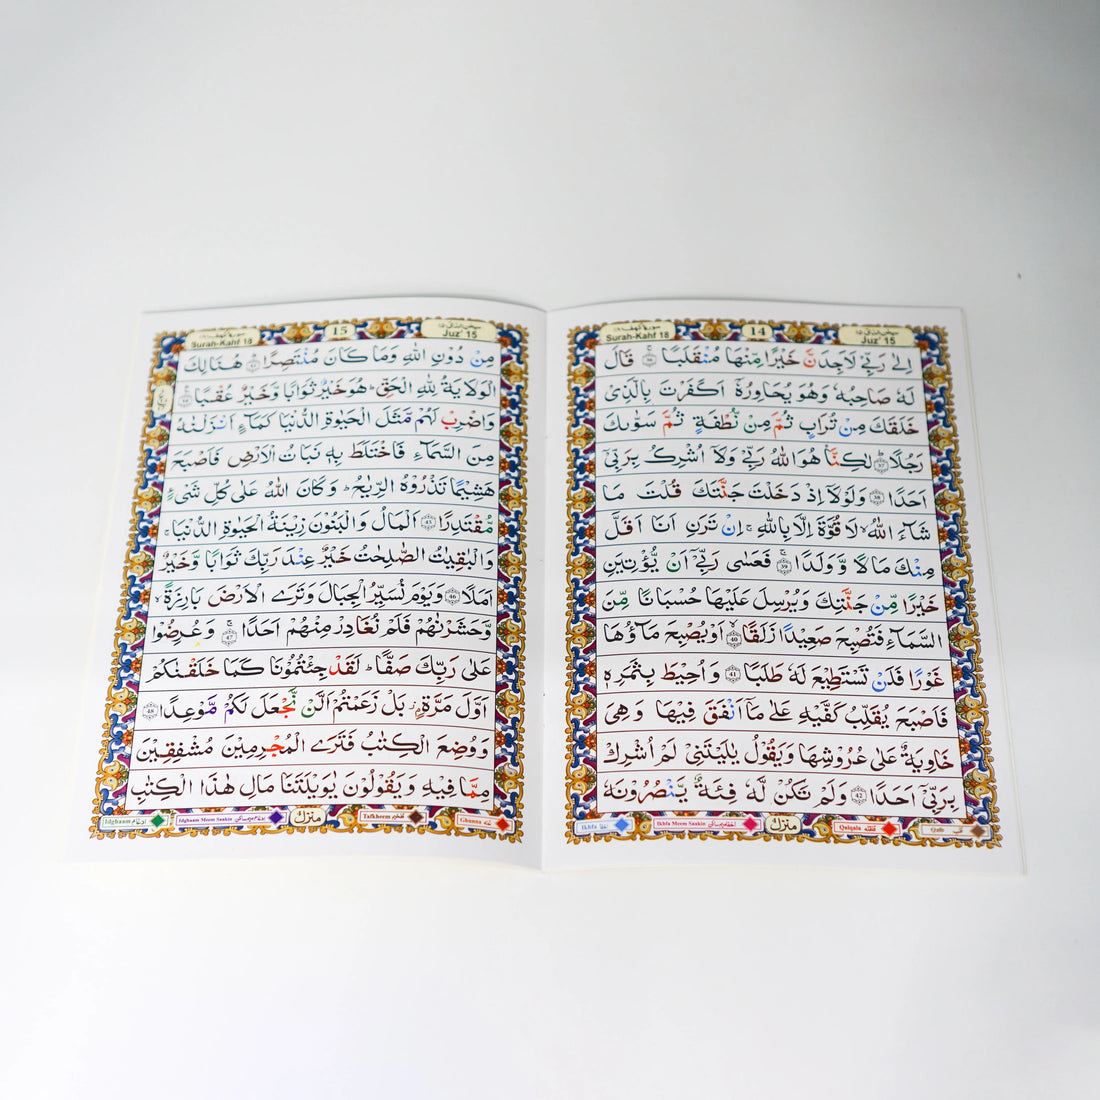 سورة كهف ١٨
Surah-Kahf 18
14
سبحن الذي ١٥
Juz' 15
اِلٰى رَبِّيْ لَاَجِدَنَّ خَيْرًا مِّنْهَا مُنْقَلَبًا ۚ ٣٦ قَالَ
لَهٗ صَاحِبُهٗ وَهُوَ يُحَاوِرُهٗٓ اَكَفَرْتَ بِالَّذِيْ
خَلَقَكَ مِنْ تُرَابٍ ثُمَّ مِنْ نُّطْفَةٍ ثُمَّ سَوّٰىكَ
رَجُلًا ؕ ٣٧ لٰكِنَّا۠ هُوَ اللّٰهُ رَبِّيْ وَلَاۤ اُشْرِكُ بِرَبِّيْۤ
اَحَدًا ٣٨ وَلَوْلَاۤ اِذْ دَخَلْتَ جَنَّتَكَ قُلْتَ مَا
شَآءَ اللّٰهُ ۙ لَا قُوَّةَ اِلَّا بِاللّٰهِ ۚ اِنْ تَرَنِ اَنَا اَقَلَّ
مِنْكَ مَالًا وَّوَلَدًا ۚ ٣٩ فَعَسٰى رَبِّيْۤ اَنْ يُّؤْتِيَنِ
خَيْرًا مِّنْ جَنَّتِكَ وَيُرْسِلَ عَلَيْهَا حُسْبَانًا مِّنَ
السَّمَآءِ فَتُصْبِحَ صَعِيْدًا زَلَقًا ۙ ٤٠ اَوْ يُصْبِحَ مَآؤُهَا
غَوْرًا فَلَنْ تَسْتَطِيْعَ لَهٗ طَلَبًا ٤١ وَاُحِيْطَ بِثَمَرِهٖ
فَاَصْبَحَ يُقَلِّبُ كَفَّيْهِ عَلٰى مَاۤ اَنْفَقَ فِيْهَا وَهِيَ
خَاوِيَةٌ عَلٰى عُرُوْشِهَا وَيَقُوْلُ يٰلَيْتَنِيْ لَمْ اُشْرِكْ
بِرَبِّيْۤ اَحَدًا ٤٢ وَلَمْ تَكُنْ لَّهٗ فِئَةٌ يَّنْصُرُوْنَهٗ
Ikhfa اخفا
Ikhfa Meem Saakin اخفا میم ساکن
منزل ٤
Qalqala قلقله
Qalb قلب
سورة كهف ١٨
Surah-Kahf 18
15
سبحن الذي ١٥
Juz' 15
مِنْ دُوْنِ اللّٰهِ وَمَا كَانَ مُنْتَصِرًا ؕ ٤٣ هُنَالِكَ
الْوَلَايَةُ لِلّٰهِ الْحَقِّ ؕ هُوَ خَيْرٌ ثَوَابًا وَّخَيْرٌ عُقْبًا ٤٤
وَاضْرِبْ لَهُمْ مَّثَلَ الْحَيٰوةِ الدُّنْيَا كَمَآءٍ اَنْزَلْنٰهُ
مِنَ السَّمَآءِ فَاخْتَلَطَ بِهٖ نَبَاتُ الْاَرْضِ فَاَصْبَحَ
هَشِيْمًا تَذْرُوْهُ الرِّيٰحُ ؕ وَكَانَ اللّٰهُ عَلٰى كُلِّ شَيْءٍ
مُّقْتَدِرًا ٤٥ اَلْمَالُ وَالْبَنُوْنَ زِيْنَةُ الْحَيٰوةِ الدُّنْيَا ۚ
وَالْبٰقِيٰتُ الصّٰلِحٰتُ خَيْرٌ عِنْدَ رَبِّكَ ثَوَابًا وَّخَيْرٌ
اَمَلًا ٤٦ وَيَوْمَ نُسَيِّرُ الْجِبَالَ وَتَرَى الْاَرْضَ بَارِزَةً ۙ
وَّحَشَرْنٰهُمْ فَلَمْ نُغَادِرْ مِنْهُمْ اَحَدًا ۚ ٤٧ وَعُرِضُوْا
عَلٰى رَبِّكَ صَفًّا ؕ لَقَدْ جِئْتُمُوْنَا كَمَا خَلَقْنٰكُمْ
اَوَّلَ مَرَّةٍۭ ۫ بَلْ زَعَمْتُمْ اَلَّنْ نَّجْعَلَ لَكُمْ مَّوْعِدًا ٤٨
وَوُضِعَ الْكِتٰبُ فَتَرَى الْمُجْرِمِيْنَ مُشْفِقِيْنَ
مِمَّا فِيْهِ وَيَقُوْلُوْنَ يٰوَيْلَتَنَا مَالِ هٰذَا الْكِتٰبِ
Idghaam ادغام
Idghaam Meem Saakin ادغام میم ساکن
منزل ٤
Tafkheem تفخیم
Ghunna غنه